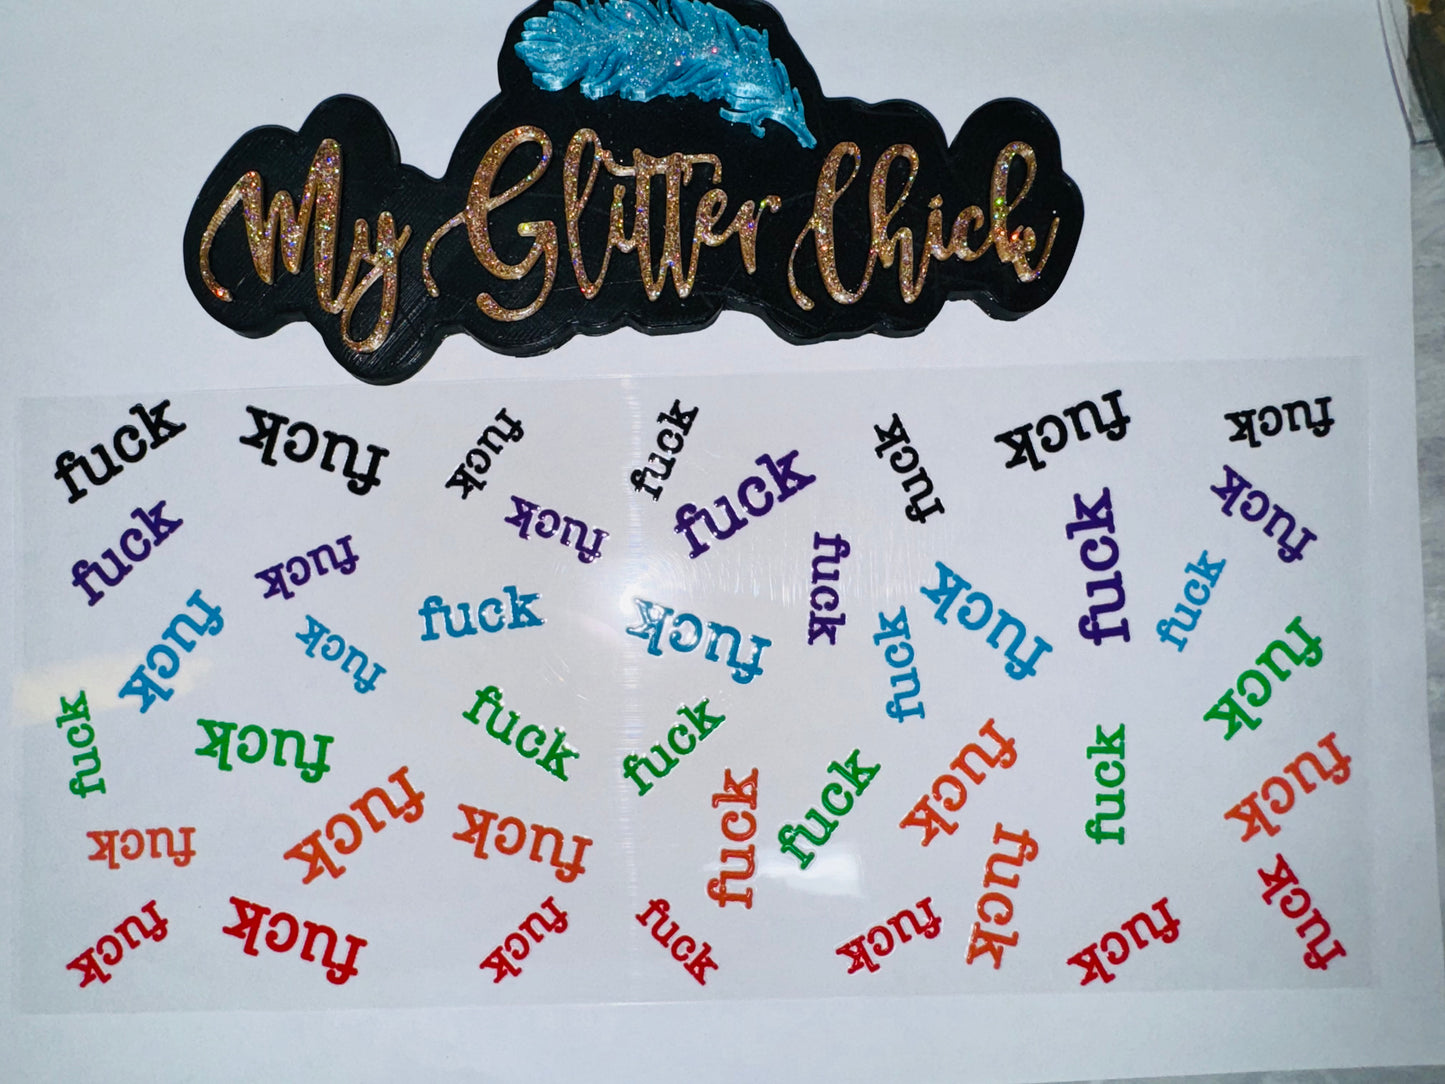 My Glitter Chick
fuck fuck fuck fuck fuck fuck fuck
fuck fuck fuck fuck fuck fuck fuck
fuck fuck fuck fuck fuck fuck fuck
fuck fuck fuck fuck fuck fuck fuck
fuck fuck fuck fuck fuck fuck fuck
fuck fuck fuck fuck fuck fuck fuck